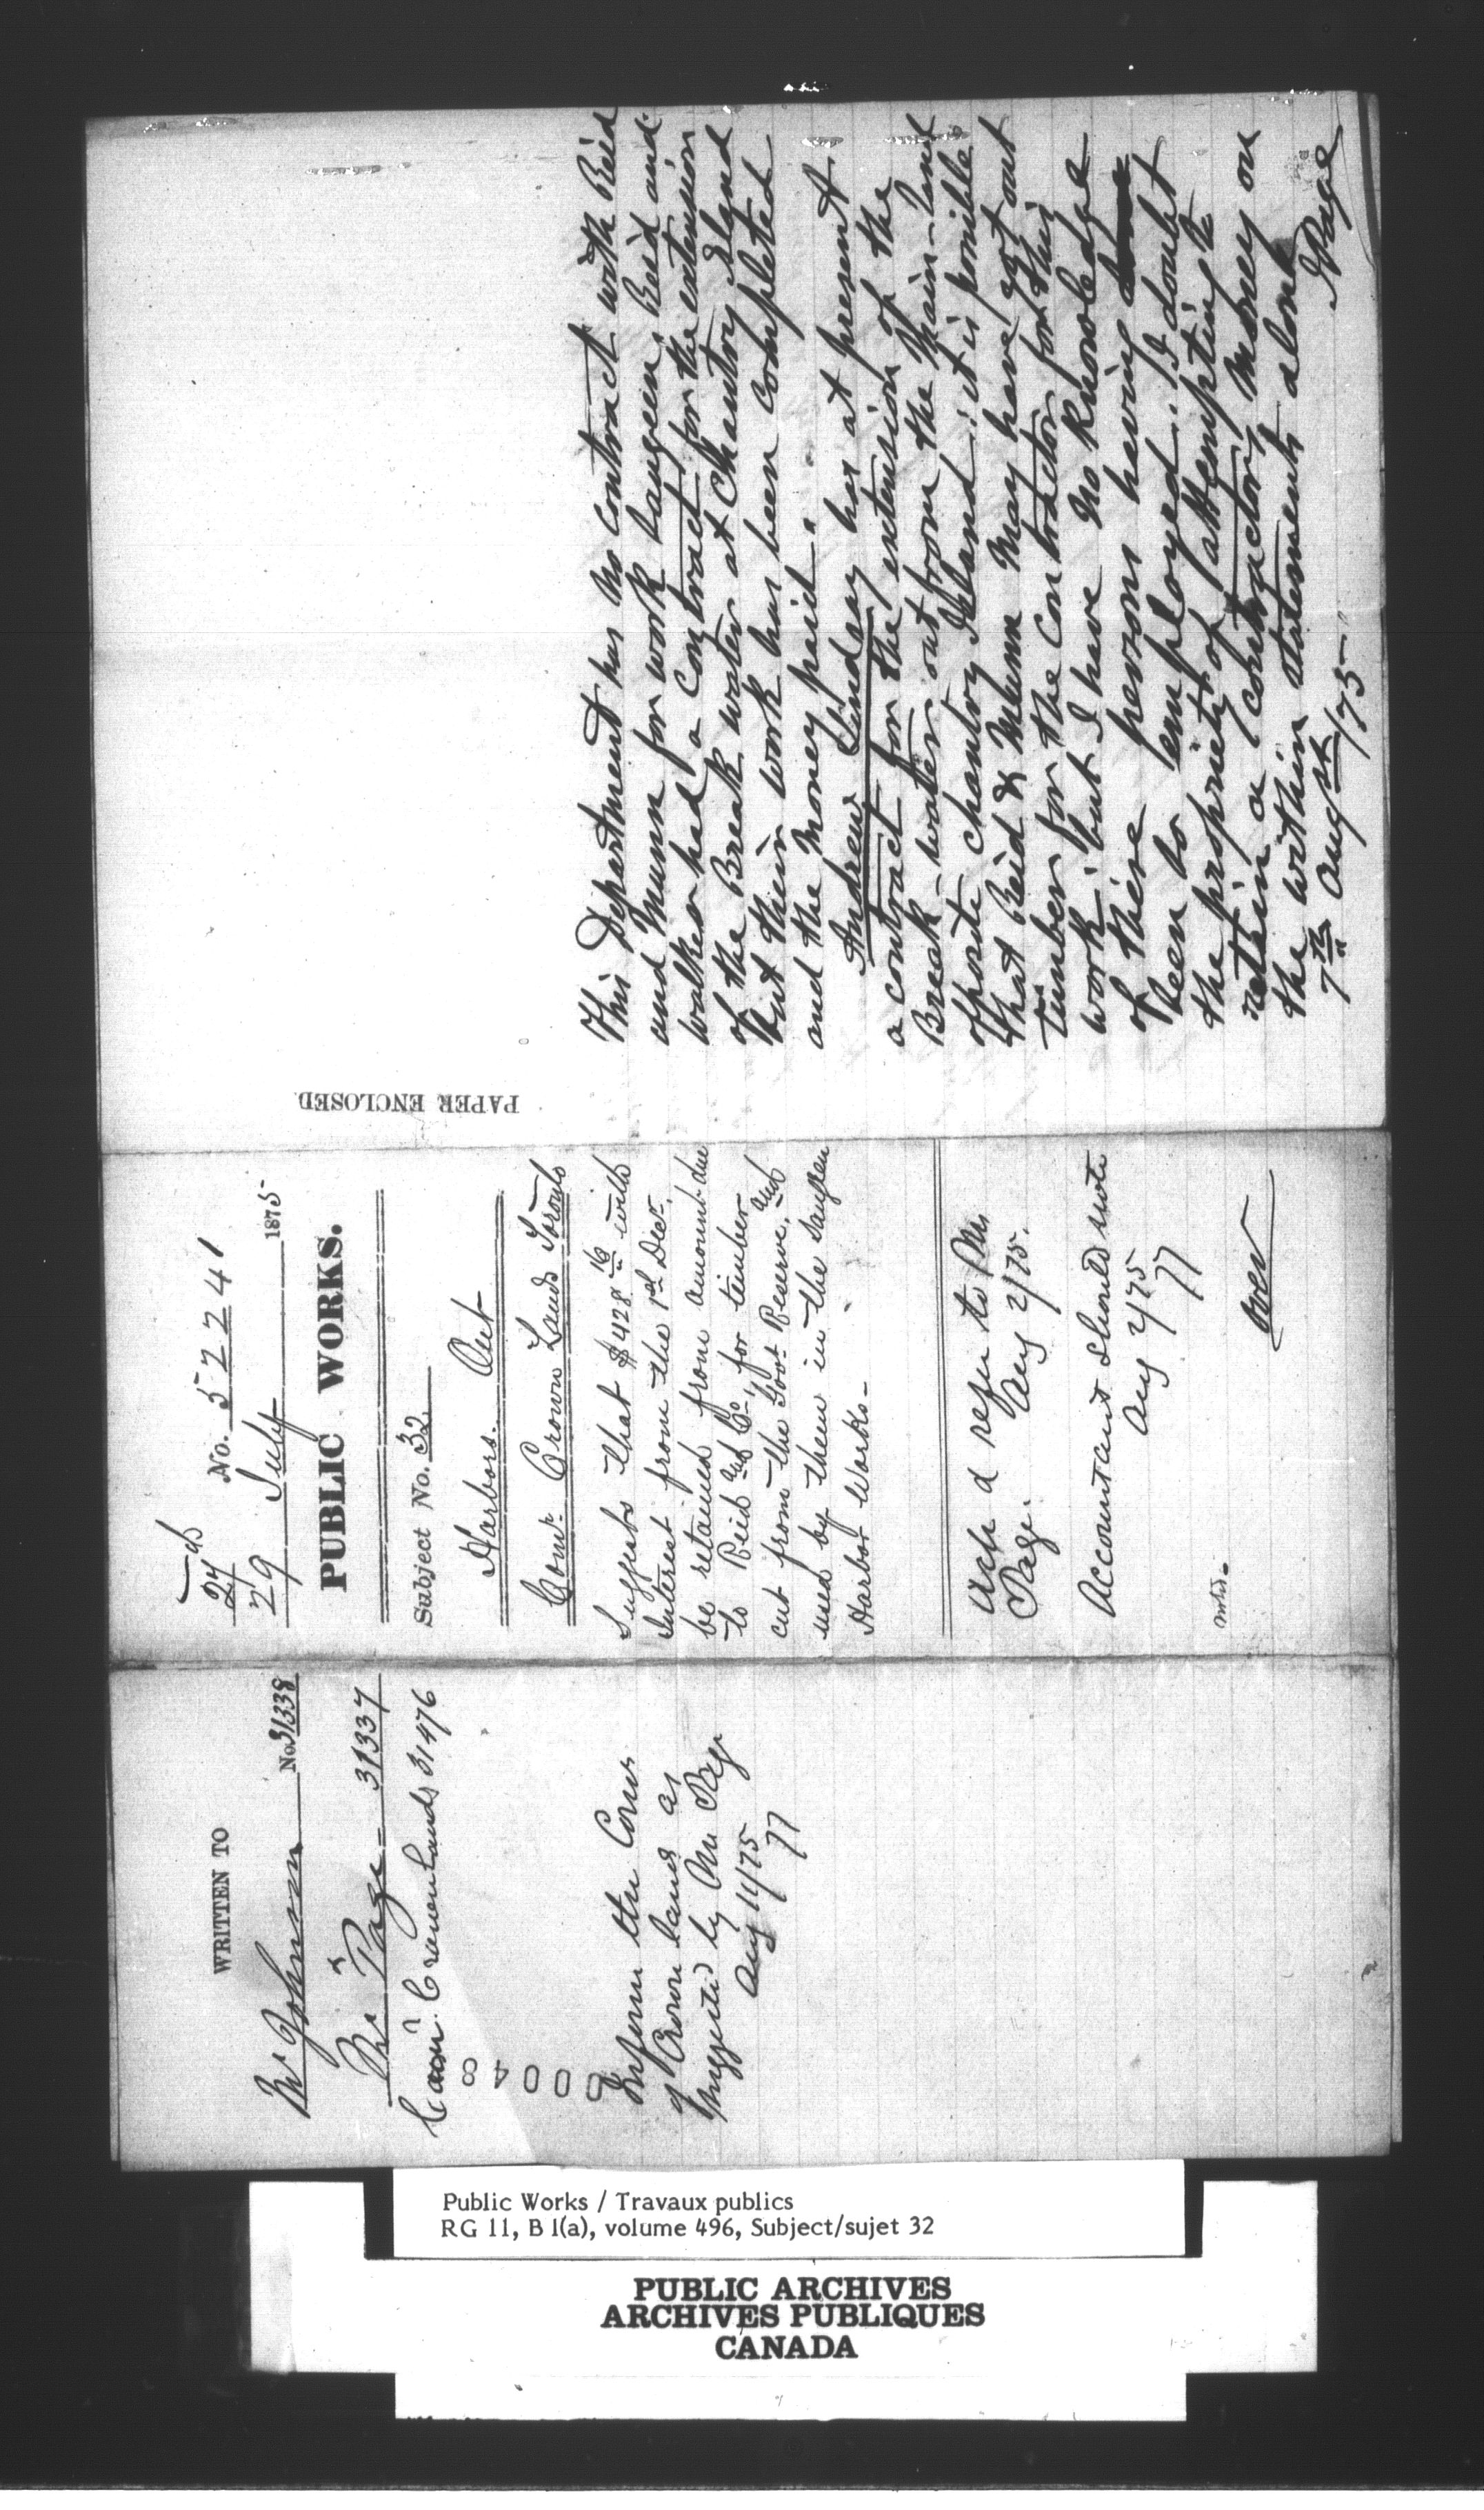 WRITTEN TO
Mr Johnson No. 31338
Mr Page - 31337
Com. Crown Lands 31476
00048
Inform the Comr
of Crown lands as
suggested by Mr Page
Aug 11/75
27 d
29 July 1875
No. 52241
PUBLIC WORKS.
Subject No. 32.
Harbors. Ont
Comr. Crown Lands Toronto
Suggests that $428 16 with
Interest from the 1st Decr,
be retained from amount due
to Reid and Co., for timber
cut from the Govt Reserve, and
used by them in the Saugeen
Harbor Works-
Ack & refer to Mr
Page. Aug 2/75.
Accountant should note
Aug 2/75
noted-
over
PAPER ENCLOSED.
This Department has no Contract with Reid
and Munn for work Saugeen, Reid and
Walker had a Contract for the extension
of the Break water at Chantry Island
but their work has been completed
and the Money paid.
Andrew Lindsay has at present
a contract for the extension of the
Break-water out from the Main-land
opposite Chantry Island: it is possible
that Reid & Munn May have got out
timber for the Contractor for this
work; but I have No Knowledge
of these persons having
been so employed. I doubt
the propriety of attempting to
retain a contractor's Money on
the within statements alone
7th August /75 JPage
Public Works / Travaux publics
RG 11, B 1(a), volume 496, Subject/sujet 32
PUBLIC ARCHIVES
ARCHIVES PUBLIQUES
CANADA